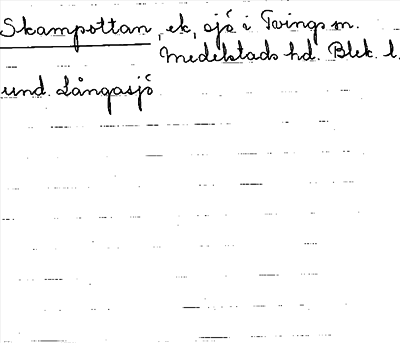 Skampottan, ek, sjö i Tvings sn.
Medelstads hd. Blek. l.
und. Långasjö